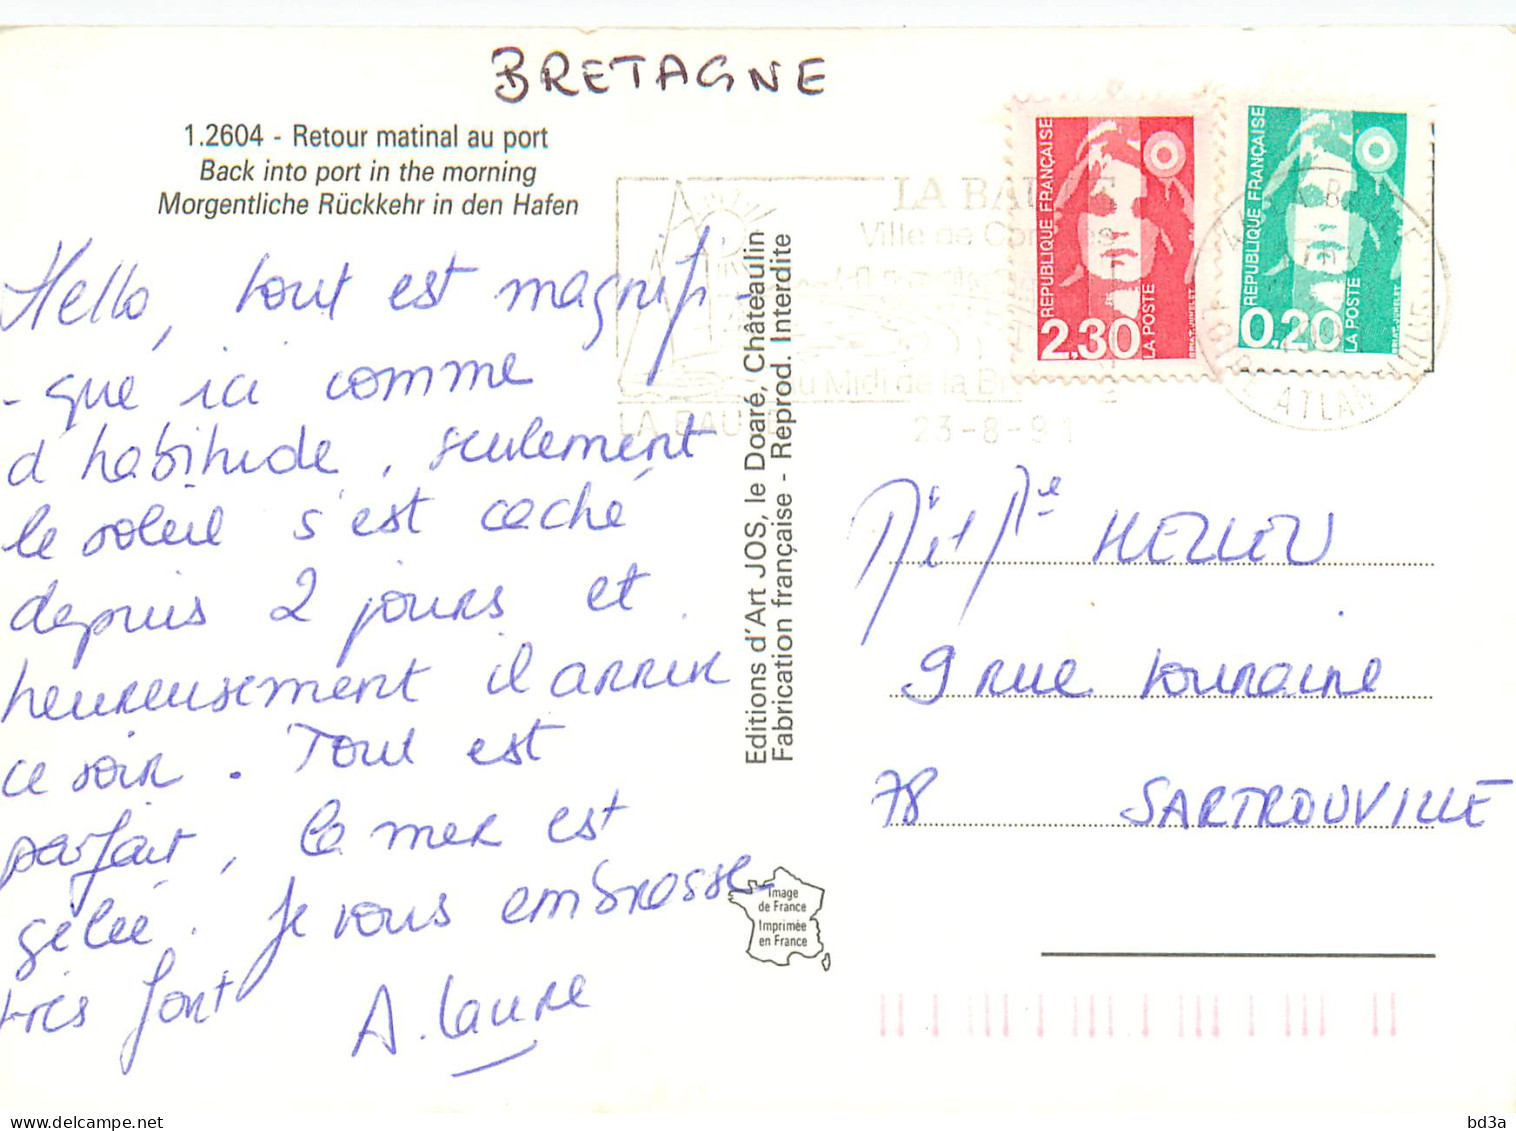 BRETAGNE
1.2604 - Retour matinal au port
Back into port in the morning
Morgentliche Rückkehr in den Hafen
Hello, tout est magnifi-
-que ici comme
d'habitude, seulement
le soleil s'est caché
depuis 2 jours et
heureusement il arrive
ce soir. Tout est
parfait, la mer est
gelée. Je vous embrasse
très fort
A. Laure
Editions d'Art JOS, le Doaré, Châteaulin
Fabrication française - Reprod. Interdite
Image
de France
Imprimée
en France
LA BAULE
Ville de Congrès
au Midi de la Bretagne
LA BAULE
23-8-91
REPUBLIQUE FRANÇAISE
2,30
LA POSTE
BRIAT-JUMELET
REPUBLIQUE FRANÇAISE
0,20
LA POSTE
BRIAT-JUMELET
LOIRE ATLANTIQUE
HELLEU
9 rue touraine
78 SARTROUVILLE
bd3a